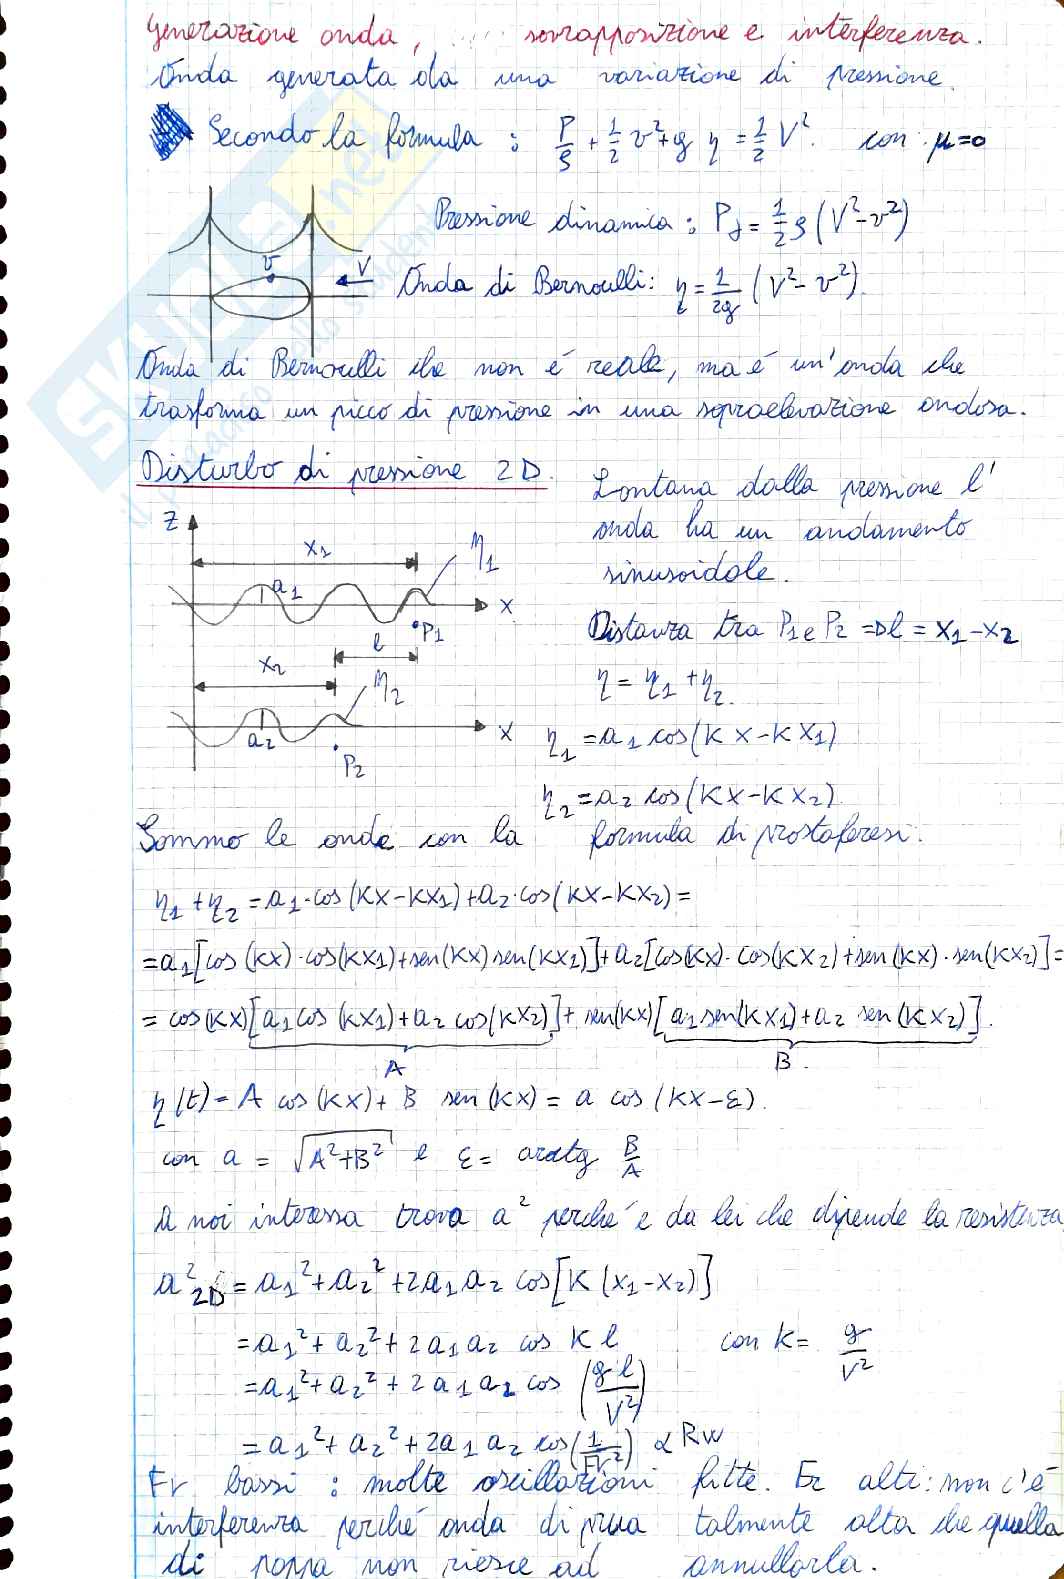 Generazione onda, sovrapposizione e interferenza.
Onda generata da una variazione di pressione.
Secondo la formula : P/ρ + 1/2 v² + g η = 1/2 V². con μ=0
Pressione dinamica : Pd = 1/2 ρ (V²-v²)
v V Onda di Bernoulli: η = 1/2g (V²-v²).
Onda di Bernoulli che non é reale, ma é un'onda che
trasforma un picco di pressione in una sopraelevazione ondosa.
Disturbo di pressione 2D.
Lontana dalla pressione l'
onda ha un andamento
sinusoidale.
Z
x1 η1
a1 x
P1
l
x2 η2
a2 x
P2
Distanza tra P1 e P2 ⇒ l = x1-x2
η = η1 + η2.
η1 = a1 cos(kx-kx1)
η2 = a2 cos(kx-kx2)
Sommo le onde con la formula di prostaferesi.
η1 + η2 = a1·cos(kx-kx1)+a2·cos(kx-kx2)=
=a1[cos(kx)·cos(kx1)+sen(kx)sen(kx1)]+a2[cos(kx)·cos(kx2)+sen(kx)·sen(kx2)]=
= cos(kx)[a1 cos(kx1)+a2 cos(kx2)]+sen(kx)[a1 sen(kx1)+a2 sen(kx2)].
A B.
η(t) = A cos(kx)+ B sen(kx) = a cos(kx-ε).
con a = √A²+B² e ε = arctg B/A
A noi interessa trova a² perché é da lei che dipende la resistenza
a²2D = a1²+a2²+2a1a2 cos[k(x1-x2)]
=a1²+a2²+2a1a2 cos k l con k = g/V²
=a1²+a2²+2a1a2 cos (g l/V²)
=a1²+a2²+2a1a2 cos(1/Fr²) ∝ Rw
Fr bassi : molte oscillazioni fitte. Fr alti: non c'é
interferenza perché onda di prua talmente alta che quella
di poppa non riesce ad annullarla.
SKUOLA.net